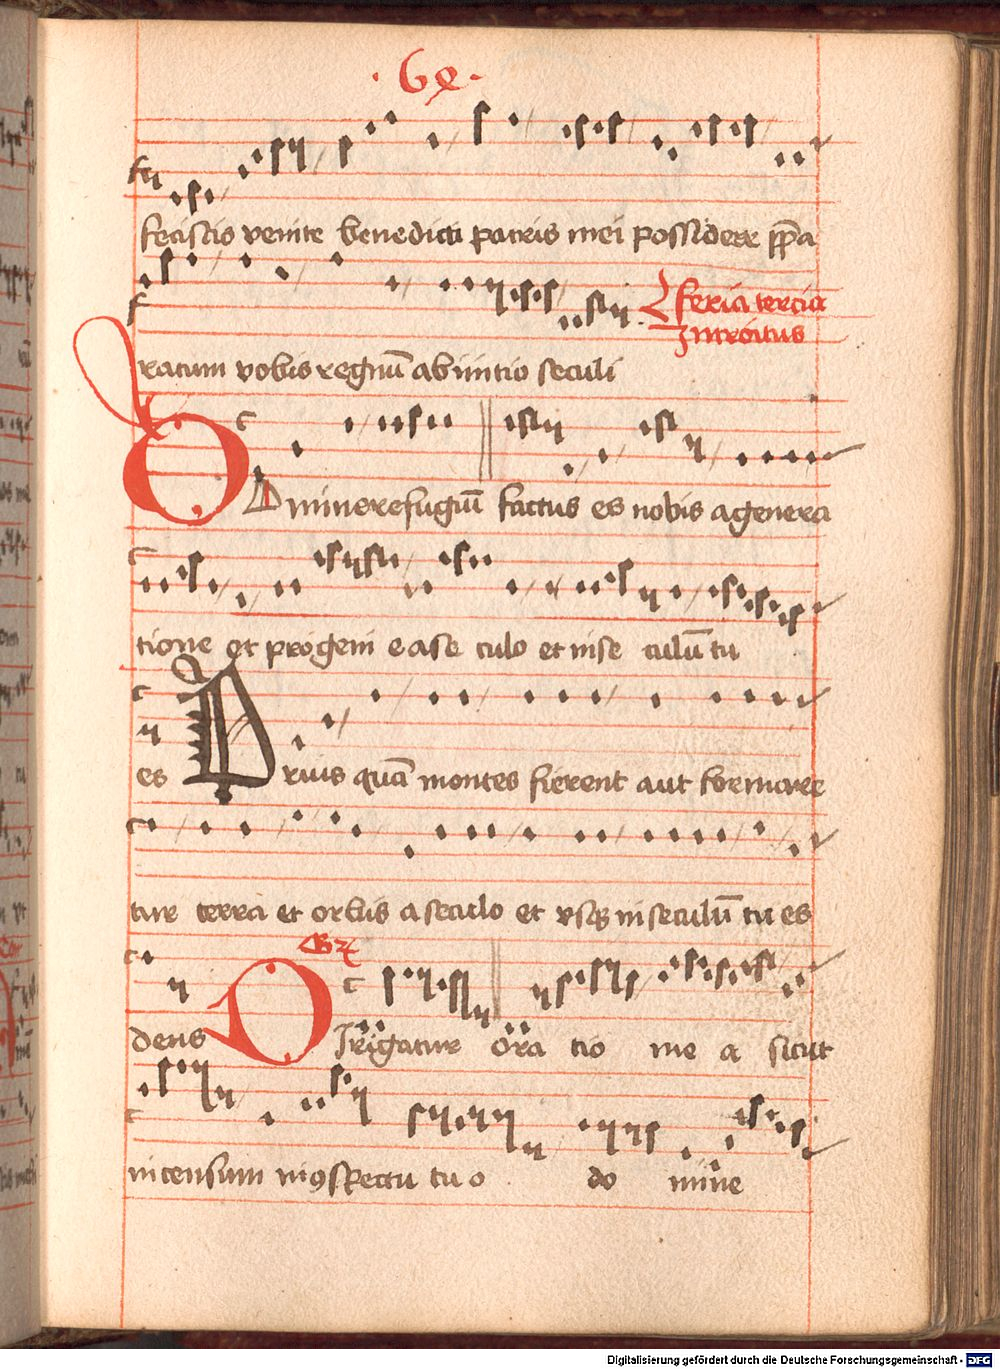 · 6ꝯ ·
fecistis venite benedicti patris mei possidete ꝑpa
feria tercia
Introitus
ratum vobis regnū ab initio seculi
Domine refugiū factus es nobis a genera
tione et progeni e a se culo et in se culū tu
es Prius quā montes fierent aut formare
tur terra et orbis a seculo et vsqꝫ in seculū tu es
Gr
deus Dirigatur ora tio me a sicut
incensum in ꝯspectu tu o do mine
Digitalisierung gefördert durch die Deutsche Forschungsgemeinschaft - DFG